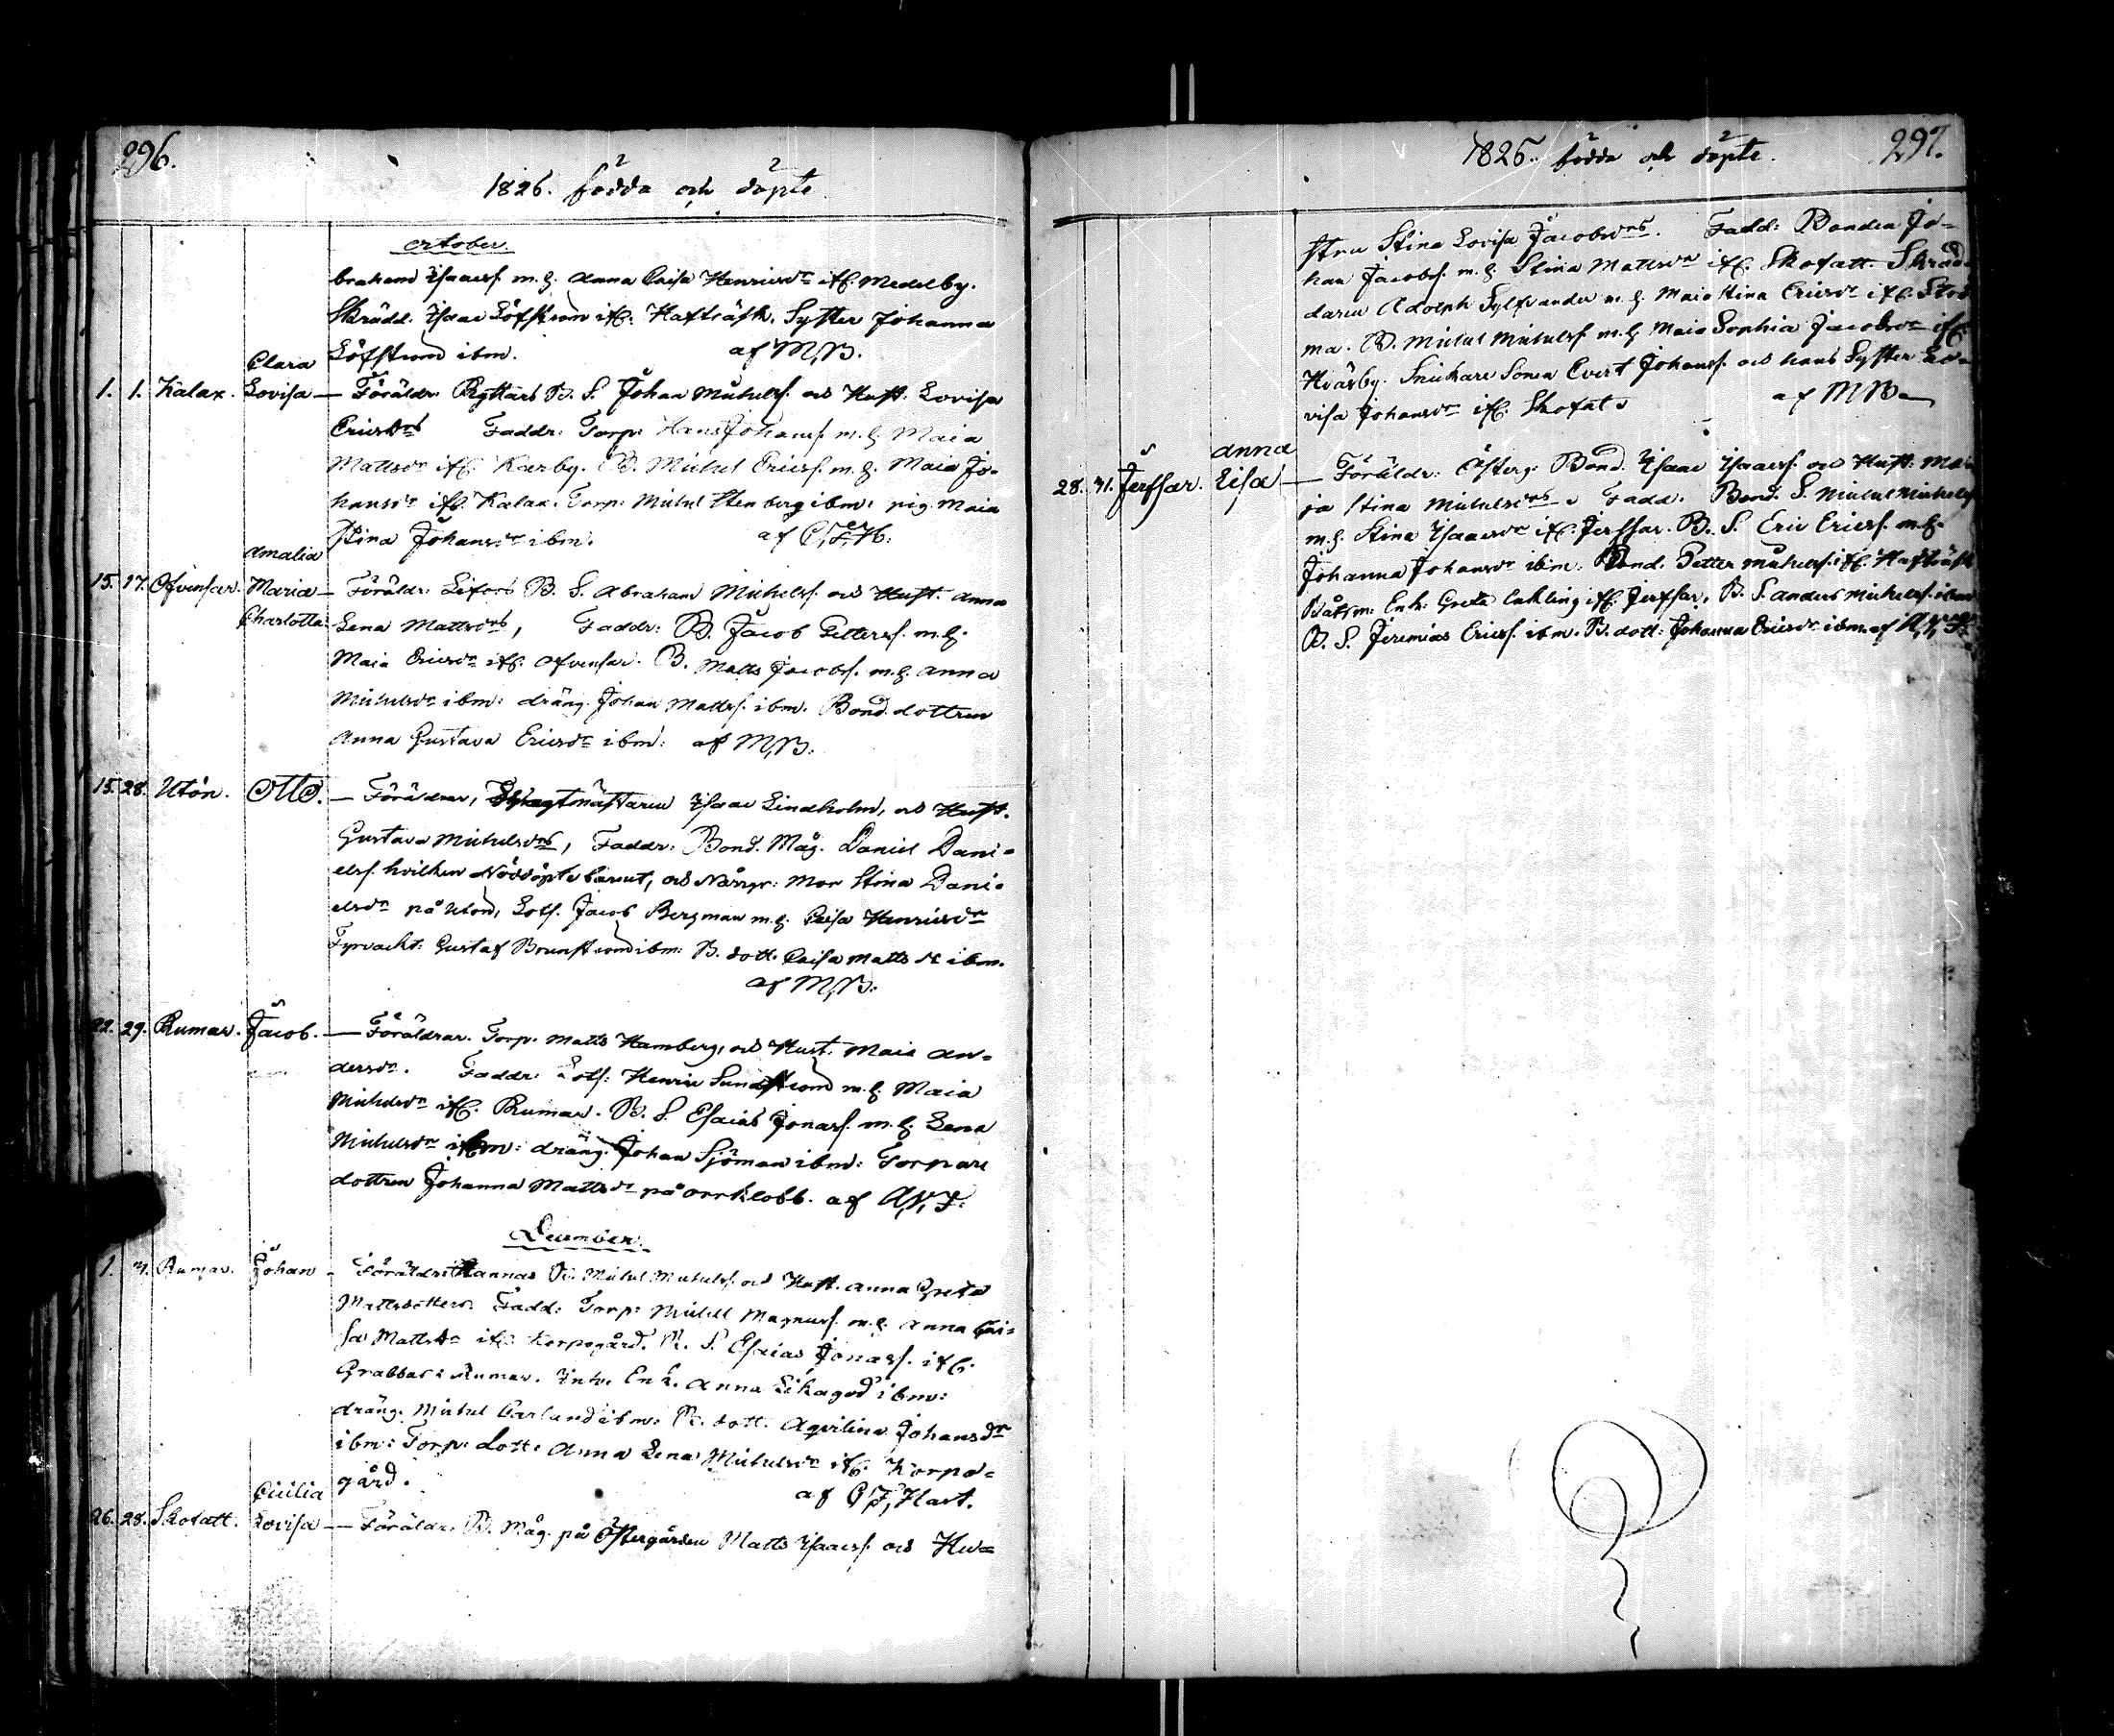 296.
1826. födda och döpte
october.
brahand Isaacss. m. h. Anna Caisa Henricsdr ifr. Medelby.
Skrädd. Isaac Löfström ifr. Hafträsk. Syster Johanna
Löfström ibm. af M, B.
Clara
1. 1. Kalax. Lovisa — Föräldr. Ryttars B. S. Johan Michelss. och Hust. Lovisa
Ericsdrs Faddr: Torp: Hans Johanss. m. h. Maia
Mattsdr ifr. Karby. B. Michel Ericss. m. h. Maia Jo-
hansdr ifr. Kalax. Torp: Michel Stenberg ibm: pig. Maia
Stina Johansdr ibm. af C, F, H:
Amalia
15. 17. Ofvensar. Maria — Föräldr: Lifors B. S. Abraham Michelss. och Hust. Anna
Charlotta. Lena Mattsdrs, Faddr: B. Jacob Petterss. m. h.
Maia Ericsdr ifr. Ofvensar. B. Matts Jacobss. m. h. Anna
Michelsdr ibm: dräng. Johan Mattss. ibm. Bond. dottren
Anna Gustava Ericsdr ibm: af M, B:
15. 28. Utön. Otto. — Föräldrar, Isaac Lindholm, och Hust.
Gustava Michelsdrs, Faddr: Bond. Måg. Daniel Dani-
elss. hvilken Nöddöpte barnet, och Mor Stina Dani-
elsdr på Utön, Lots. Jacob Bergman m. h. Caisa Henricsdr
Fyrvackt: Gustaf Brunström ibm: B. dott. Caisa Mattsdr ibm.
af M, B:
22. 29. Rumar. Jacob. — Föräldrar. Torp. Matts Hamberg, och Hust. Maia An-
dersdr. Faddr: Lots: Henric Sundström m. h. Maia
Michelsdr ifr. Rumar. B. S. Esaias Jonass. m. h. Lena
Michelsdr ibm: dräng. Johan Sjöman ibm: Torpare
dottren Johanna Mattsdr på Orrklobb. af A, N, F:
December.
1. 3. Rumar. Johan — Föräldr: Hannas B. Michel Michelss. och Hust. Anna Greta
Mattsdotters. Fadd: Torp: Michell Magnuss. m. h. Anna Cai-
sa Mattsdr ifr. Korpogård. B. S. Esaias Jonass. ifr.
Grabbas i Rumar. Inh. Enk. Anna Likagod ibm:
dräng. Michel Carlund ibm: B. dott. Aqvilina Johansdr
ibm: Torp: dott: Anna Lena Michelsdr ifr. Korpo-
gård. af C, F, Hart.
Cicilia
26. 28. Skofatt. Lovisa — Föräldr. B. Måg. på Östergården Matts Isaacss. och Hu-
1826. födda och döpte. 297.
stru Stina Lovisa Jacobsdrs. Fadd: Bonden Jo-
han Jacobss. m. h. Stina Mattsdr ifr. Skofatt. Skräd-
daren Adolph Sylfvander m. h. Maia Stina Ericsdr ifr.
ma. B. Michel Michelss. m. h. Maia Sophia Jacobsdr ifr.
Hväsby. Snickare Sonen Evert Johanss. och hans Syster Lo-
visa Johansdr ifr. Skofatt. af M, B.
Anna
28. 31. Jerfsar. Lisa — Föräldr: Österg: Bond. Isaac Isaacss. och Hust. Ma-
ja Stina Michelsdrs. Fadd. Bond. S. Michel Michelss
m. h. Stina Isaacsdr ifr. Jerfsar. B. S. Eric Ericss. m. h.
Johanna Johansdr ibm: Bond. Petter Michelss. ifr. Hafträsk
Båtsm: Enk: Greta Enkling ifr. Jerfsar, B. S. Anders Michelss. ibm
B. S. Jeremias Ericss. ibm. B. dott: Johanna Ericsdr ibm. af A, N, F: